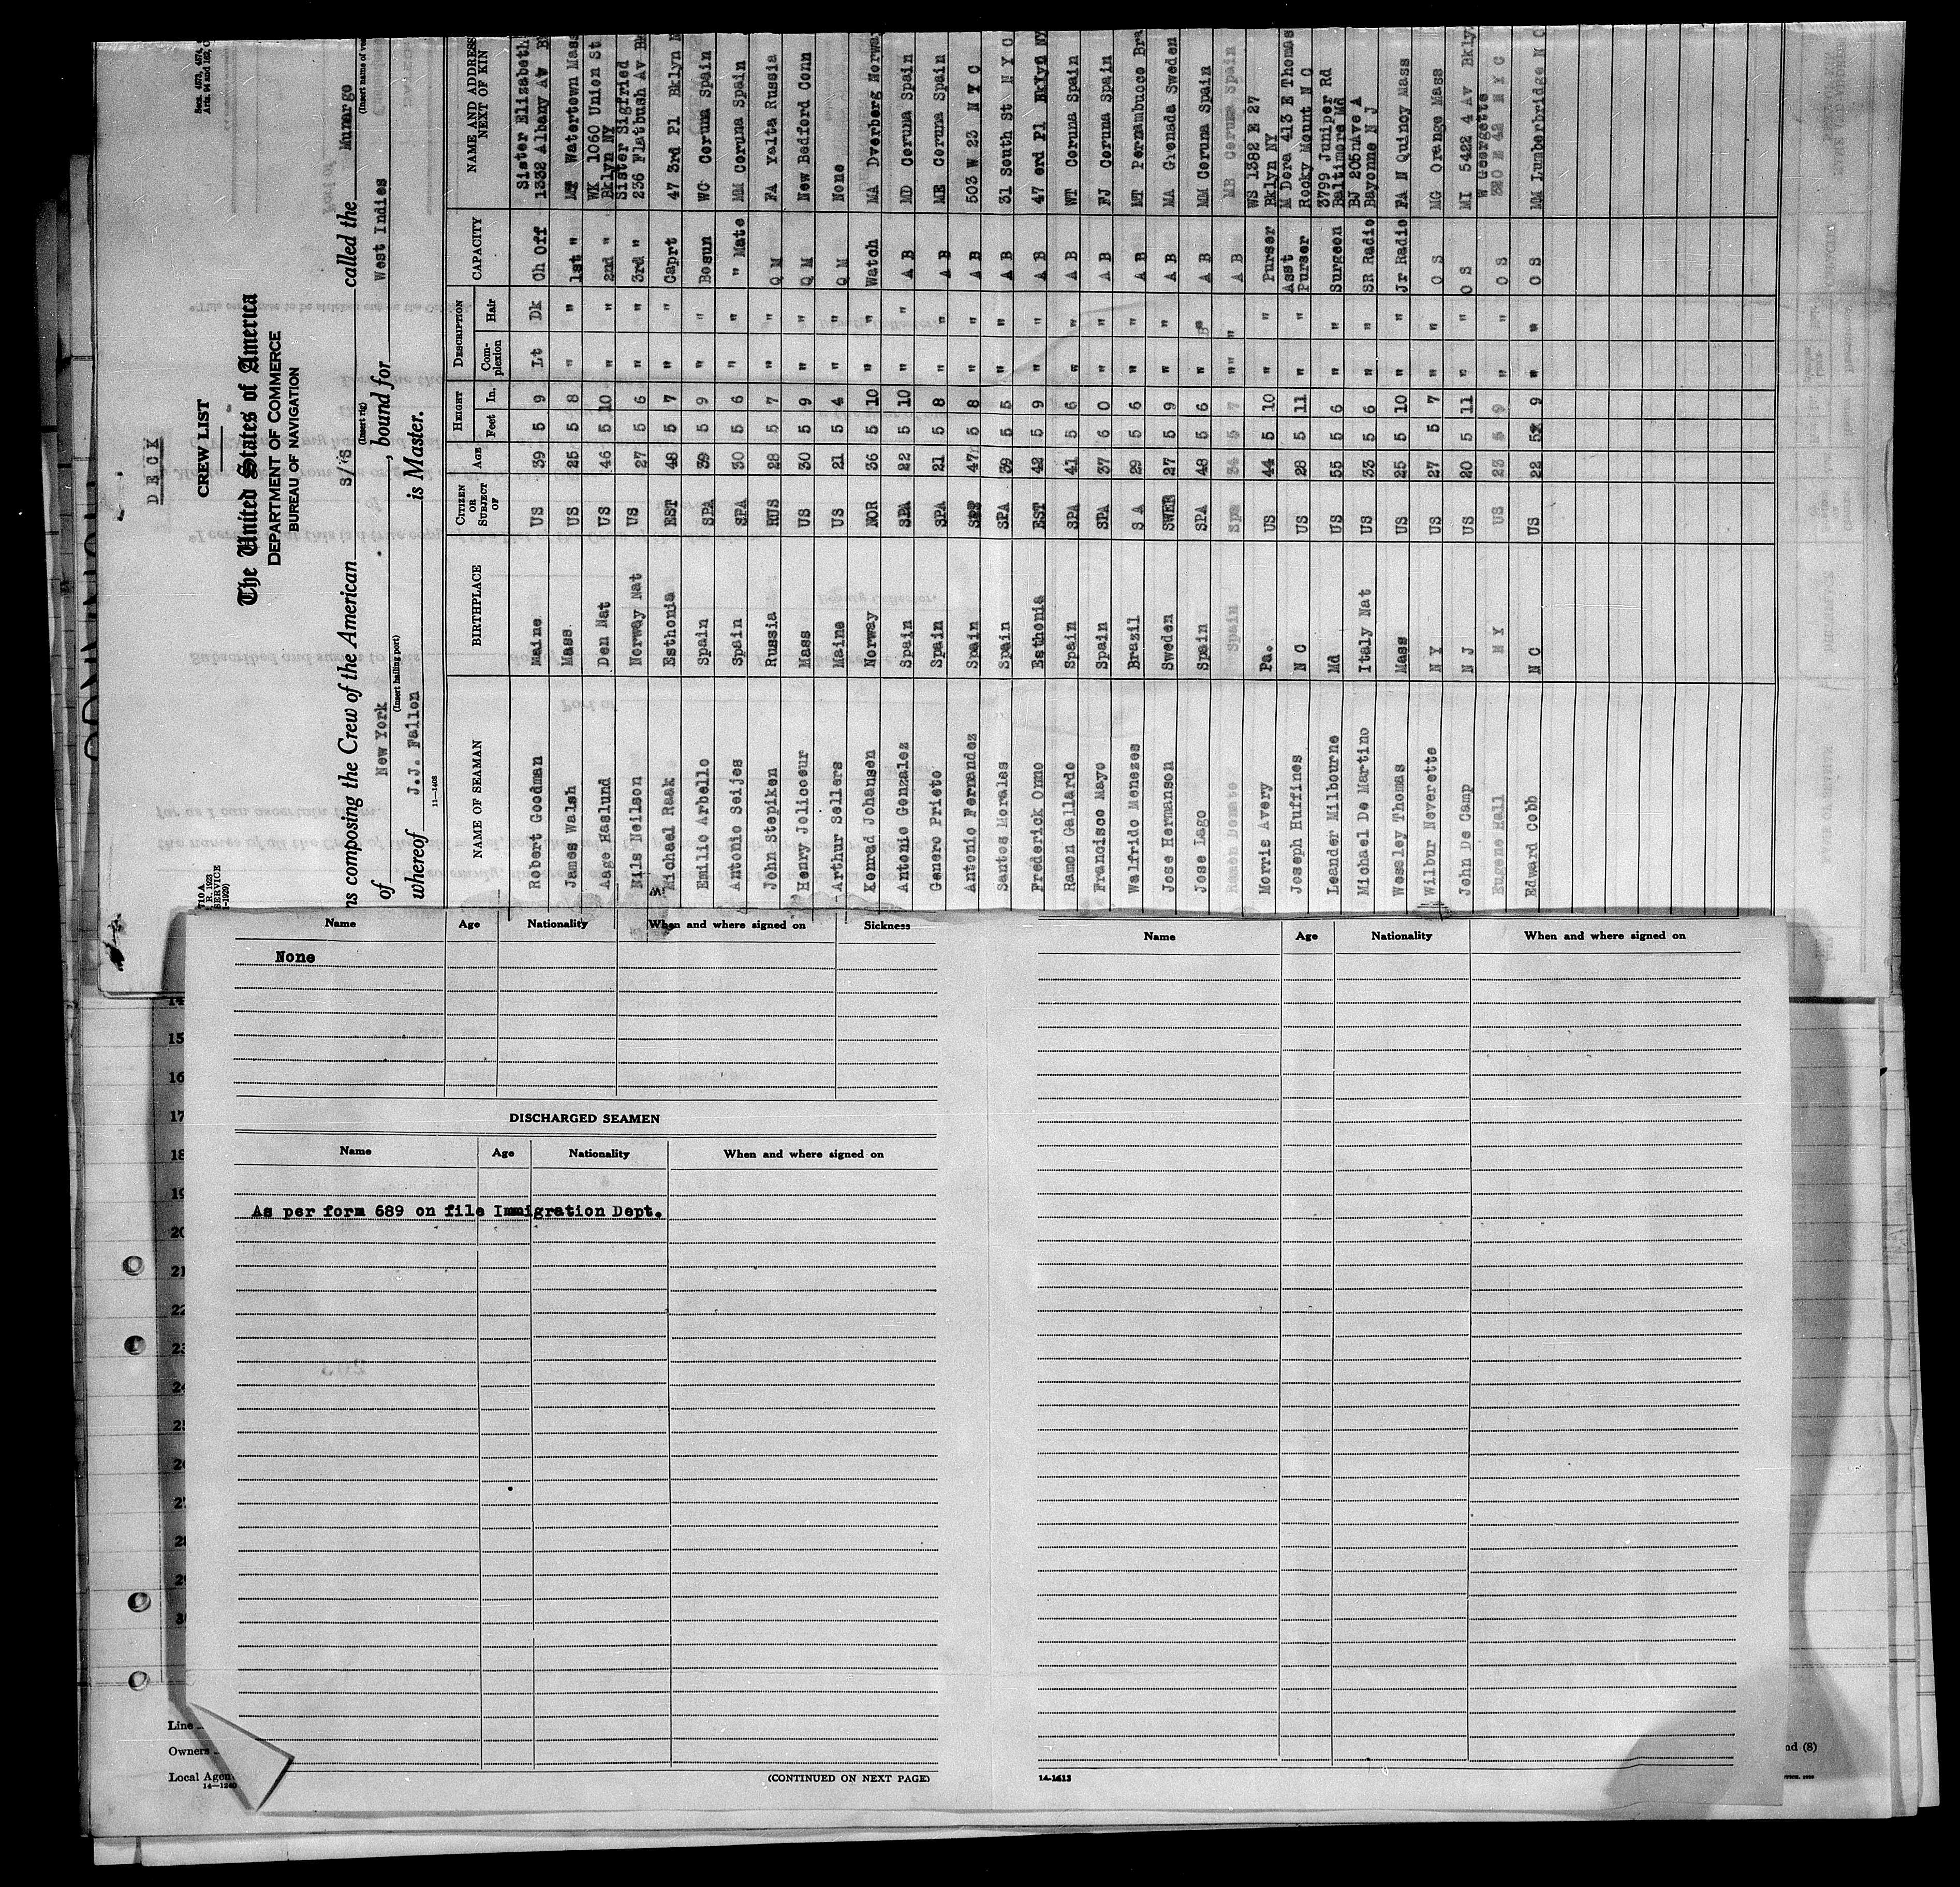 DECK
CREW LIST
The United States of America
DEPARTMENT OF COMMERCE
BUREAU OF NAVIGATION
ns composing the Crew of the American S/S called the Munargo
(Insert rig) (Insert name of ve
of New York, bound for West Indies
(Insert hailing port)
whereof J.J. Fallon is Master.
11-1408
NAME OF SEAMAN BIRTHPLACE CITIZEN OR SUBJECT OF AGE HEIGHT Feet In. DESCRIPTION Complexion Hair CAPACITY NAME AND ADDRESS NEXT OF KIN
Robert Goodman Maine US 39 5 9 Lt Dk Ch Off Sister Elizabeth 1332 Albany Av B
James Walsh Mass. US 25 5 8 " " 1st " Watertown Mass
Aage Haslund Den Nat US 46 5 10 " " 2nd " WK 1060 Union St Bklyn NY
Nils Neilson Norway Nat US 27 5 6 " " 3rd " Sister Sigfried 236 Flatbush Av Bk
Michael Raak Esthonia EST 48 5 7 " " Caprt 47 3rd Pl Bklyn N
Emilio Arbello Spain SPA 39 5 9 " " Bosun WC Coruna Spain
Antonio Seijos Spain SPA 30 5 6 " " " Mate MM Coruna Spain
John Stepiken Russia RUS 28 5 7 " " Q M FA Yalta Russia
Henry Jolicoeur Mass US 30 5 9 " " Q M New Bedford Conn
Arthur Sellers Maine US 21 5 4 " " Q M None
Konrad Johansen Norway NOR 36 5 10 " " Watch MA Dverberg Norwa
Antonio Gonzalez Spain SPA 22 5 10 " " A B MD Coruna Spain
Genero Prieto Spain SPA 21 5 8 " " A B ME Coruna Spain
Antonio Fernandez Spain 47 5 8 " " A B 503 W 23 N Y C
Santos Morales Spain SPA 39 5 5 " " A B 31 South St N Y C
Frederick Onno Esthonia EST 42 5 9 " " A B 47 erd Pl Bklyn NY
Ramon Gallardo Spain SPA 41 5 6 " " A B WT Coruna Spain
Francisco Mayo Spain SPA 37 6 0 " " A B FJ Coruna Spain
Walfrido Menezes Brazil S A 29 5 6 " " A B MT Pernambuco Bra
Jose Hermanson Sweden SWED 27 5 9 " " A B MA Grenada Sweden
Jose Lago Spain SPA 48 5 6 " A B MM Coruna Spain
Ramon Spain Spa 34 5 7 " " A B MR Coruna Spain
Morris Avery Pa. US 44 5 10 " " Purser WS 1382 E 27 Bklyn NY
Joseph Huffines N C US 28 5 11 " " Asst Purser M Dora 413 E Thomas Rocky Mount N C
Leander Milbourne Md US 55 5 6 " " Surgeon 3799 Juniper Rd Baltimore Md
Michael De Martino Italy Nat US 33 5 6 " " SR Radio BJ 205 Ave A Bayonne N J
Wessley Thomas Mass US 25 5 10 " " Jr Radio FA N Quincy Mass
Wilbur Neverette N Y US 27 5 7 " " O S MG Orange Mass
John De Camp N J US 20 5 11 " " O S MI 5422 4 Av Bkly
Eugene Hall N Y US 23 5 9 " " O S W Georgette E 42 N Y C
Edward Cobb N C US 22 5 9 " " O S MM Lumberbridge N C
Name Age Nationality When and where signed on Sickness
None
DISCHARGED SEAMEN
Name Age Nationality When and where signed on
As per form 689 on file Immigration Dept.
(CONTINUED ON NEXT PAGE)
Name Age Nationality When and where signed on
14-1613
14
15
16
17
18
19
20
21
22
23
24
Line
Owners
Local Agen
14-1240
nd (8)